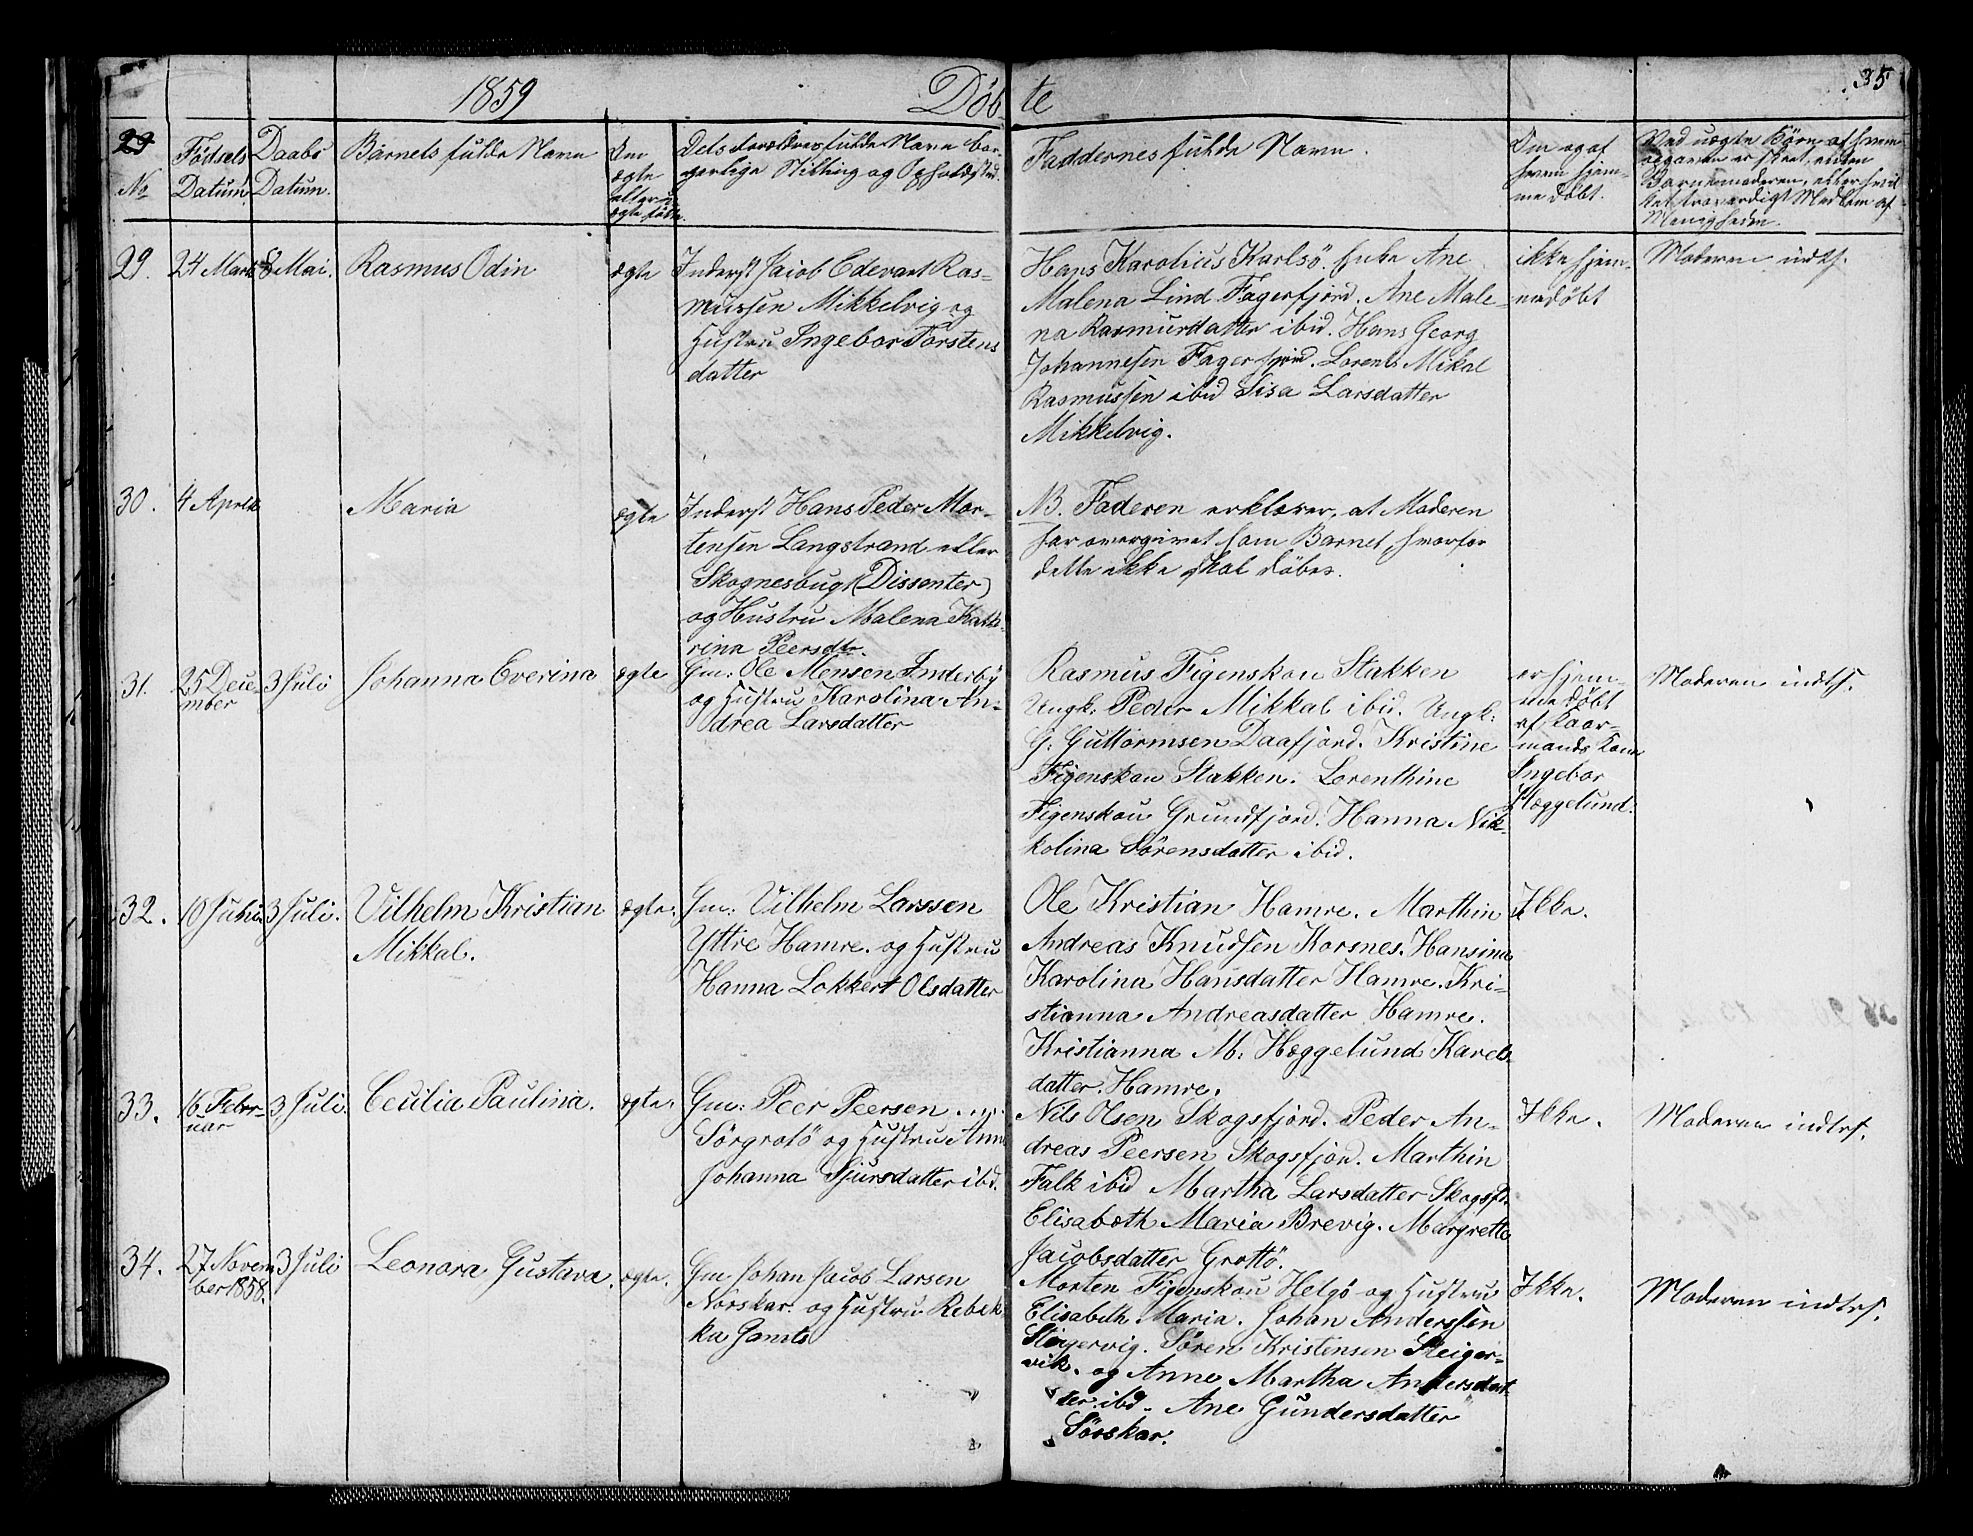 1859 Döb- te 35
29
No
Fødsels
Datum
Daabs
Datum.
Barnets fulde Navn
Om
ægte
eller u-
ægte født.
Dets Forældres fulde Navn bor-
gerlige Stilling og Opholdsted.
Faddernes fulde Navn.
Om og af
hvem hjem-
me döbt.
Ved uægte Börn af hvem
opgaven er skeet, enten
Barnemoderen, eller hvil-
ket troværdigt Medlem af
Menigheden.
29. 24 Marts 8 Mai. Rasmus Odin ægte
Inderst Jacob Edevart Ras-
mussen Mikkelvig og
Hustru Ingebor Torstens
datter
Hans Karolius Karlsö. Ane
Malena Lind Fagerfjord. Ane Male-
na Rasmusdatter ibid. Hans Georg
Johannesen Fagerfjord. Lorents Mikal
Rasmussen ibid Sisa Larsdatter
Mikkelvig.
ikke hjem-
medöbt
Moderen indts.
30. 4 April Maria ægte
Inderst Hans Peder Mor-
tensen Langstrand eller
Skognesbugt (Dissenter)
og Hustru Malena Kath-
rina Peersdtr.
NB. Faderen erklærer, at Moderen
har overgivet ham Barnet, hvorfor
dette ikke skal döbes.
31. 25 Dece-
mber
3 Juli Johanna Everina ægte
Gm: Ole Monsen Inderby
og Hustru Karolina An-
drea Larsdatter
Rasmus Figenskou Stakken
Ungk: Peder Mikkal ibid. Ungk:
G. Guttormsen Daafjord. Kristine
Figenskou Stakken. Lorenthine
Figenskou Grundfjord. Hanna Nik-
kolina Sörensdatter ibid.
er hjem-
me döbt
af Kaar-
mands Kone
Ingebor
Hæggelund.
Moderen indts.
32. 10 Juni 3 Juli. Vilhelm Kristian
Mikkal.
ægte.
Gm: Vilhelm Larssen
Yttre Hamre. og Hustru
Hanna Lokkert Olsdatter
Ole Kristian Hamre. Marthin
Andreas Knudsen Korsnes. Hansina
Karolina Hansdatter Hamre. Kri-
stianna Andreasdatter Hamre.
Kristianna M: Hæggelund Karels-
datter. Hamre.
Ikke.
33. 16 Febr-
uar
3 Juli. Cecilia Paulina. ægte.
Gm: Peer Peersen
Sörgrotö og Hustru Anna
Johanna Sjursdatter ibd.
Nils Olsen Skogsfjord. Peder An-
dreas Peersen Skogsfjord. Marthin
Falk ibid Martha Larsdatter Skogsfj.
Elisabeth Maria Brevig. Margrette
Jacobsdatter Grottö.
Ikke.
Moderen indts.
34. 27 Novem
ber 1858.
3 Juli Leonora Gustava. ægte.
Gm Johan Jacob Larsen
Nörskar. og Hustru Rebek-
ka Gamts
Morten Figenskou Helgö og Hustru
Elisabeth Maria. Johan Anderssen
Steigervig. Sören Kristensen Steiger-
vik. og Anne Martha Andersdat-
ter ibd. Ane Gundersdatter
Sörskar.
Ikke.
Moderen indts.